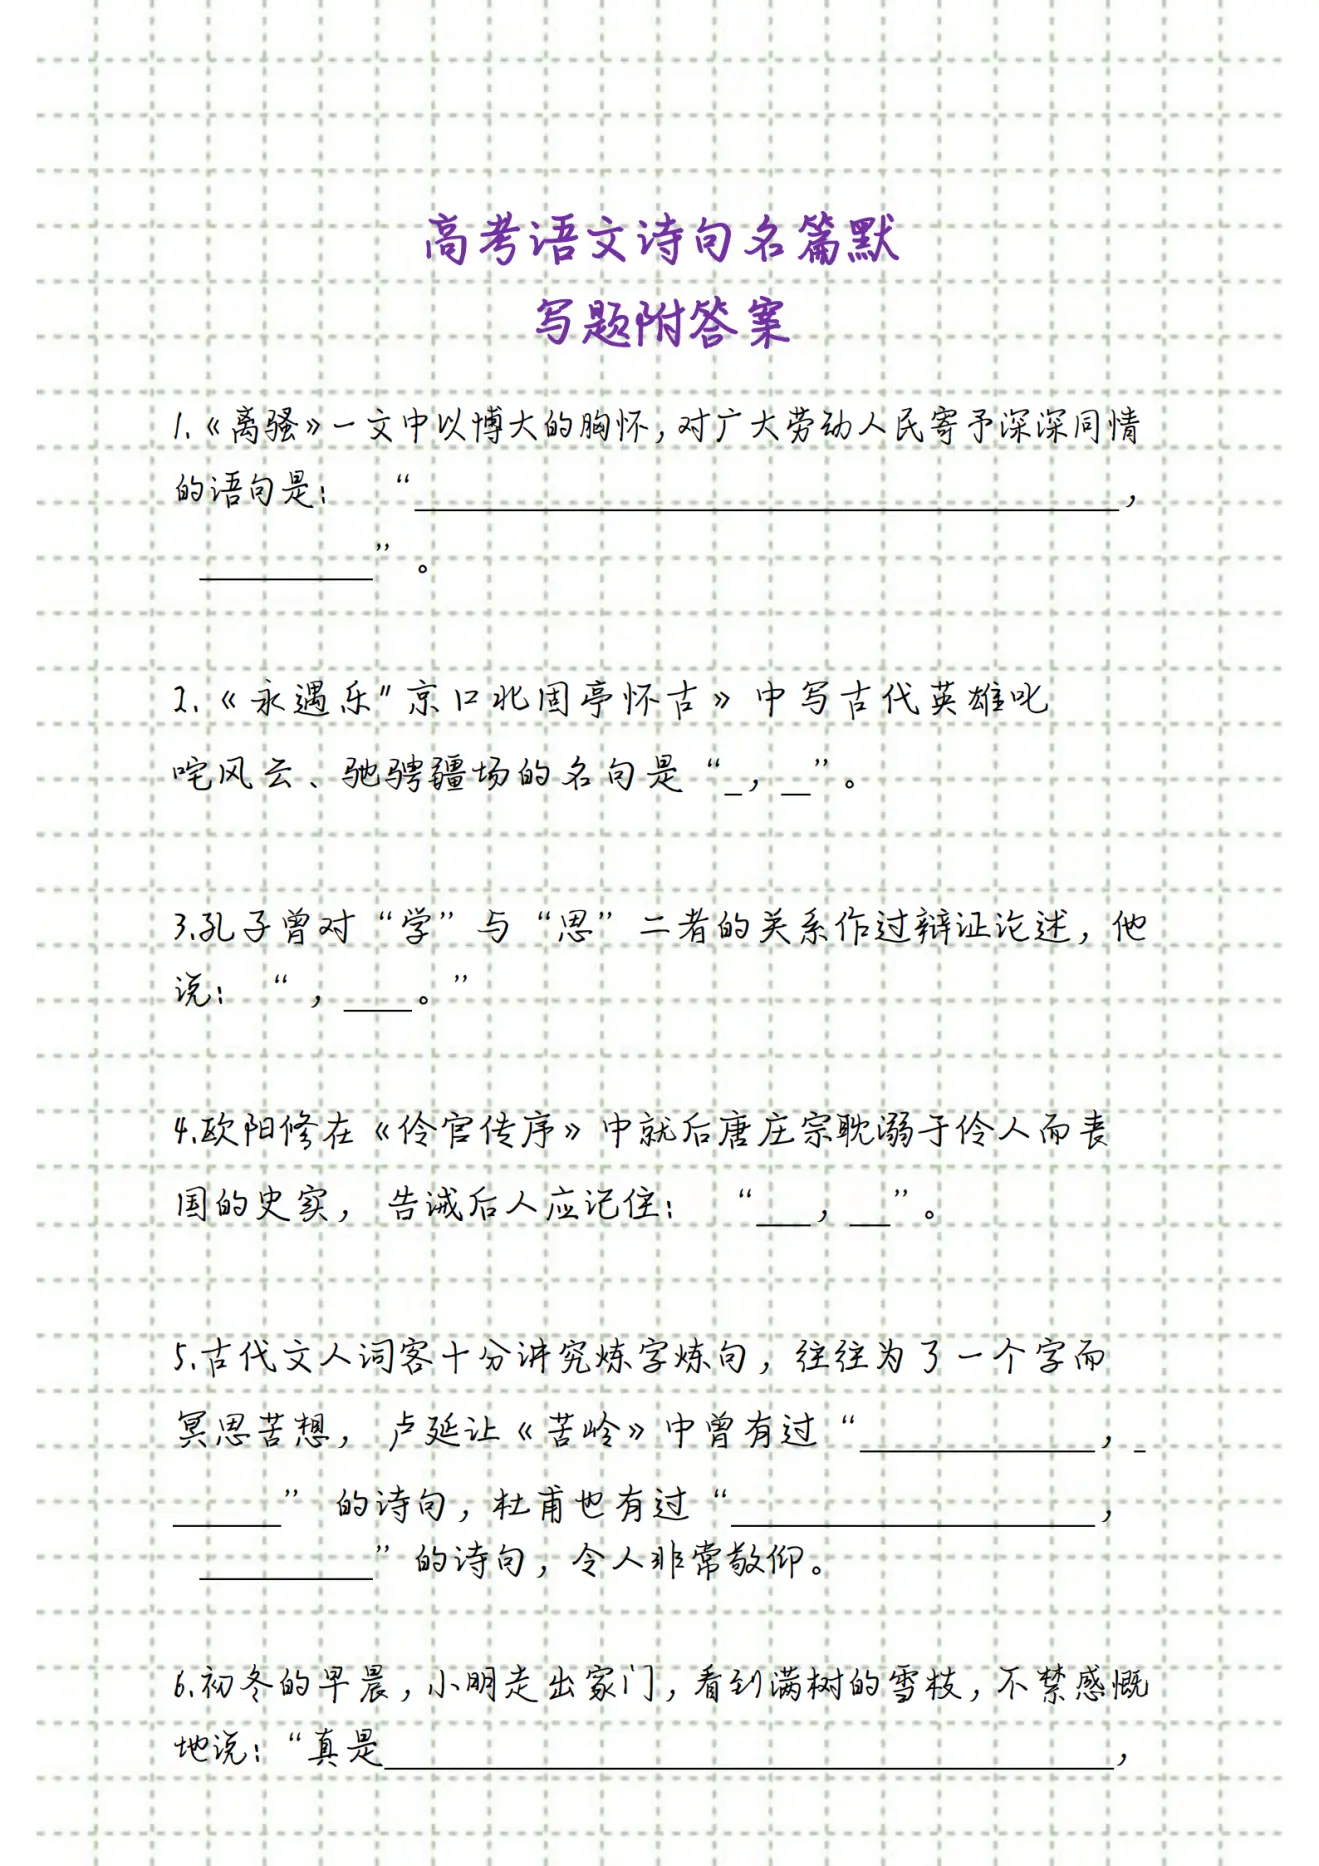 高考语文诗句名篇默
写题附答案
1.《离骚》一文中以博大的胸怀，对广大劳动人民寄予深深同情
的语句是： “________________________________，
________” 。
2.《永遇乐"京口北固亭怀古》中写古代英雄叱
咤风云、驰骋疆场的名句是“_，__”。
3.孔子曾对“学”与“思”二者的关系作过辩证论述，他
说： “ ，____。”
4.欧阳修在《伶官传序》中就后唐庄宗耽溺于伶人而丧
国的史实， 告诫后人应记住： “___，__”。
5.古代文人词客十分讲究炼字炼句，往往为了一个字而
冥思苦想， 卢延让《苦岭》中曾有过“____________，_
______” 的诗句，杜甫也有过“__________________，
________”的诗句，令人非常敬仰。
6.初冬的早晨，小明走出家门，看到满树的雪枝，不禁感慨
地说：“真是____________________________________，